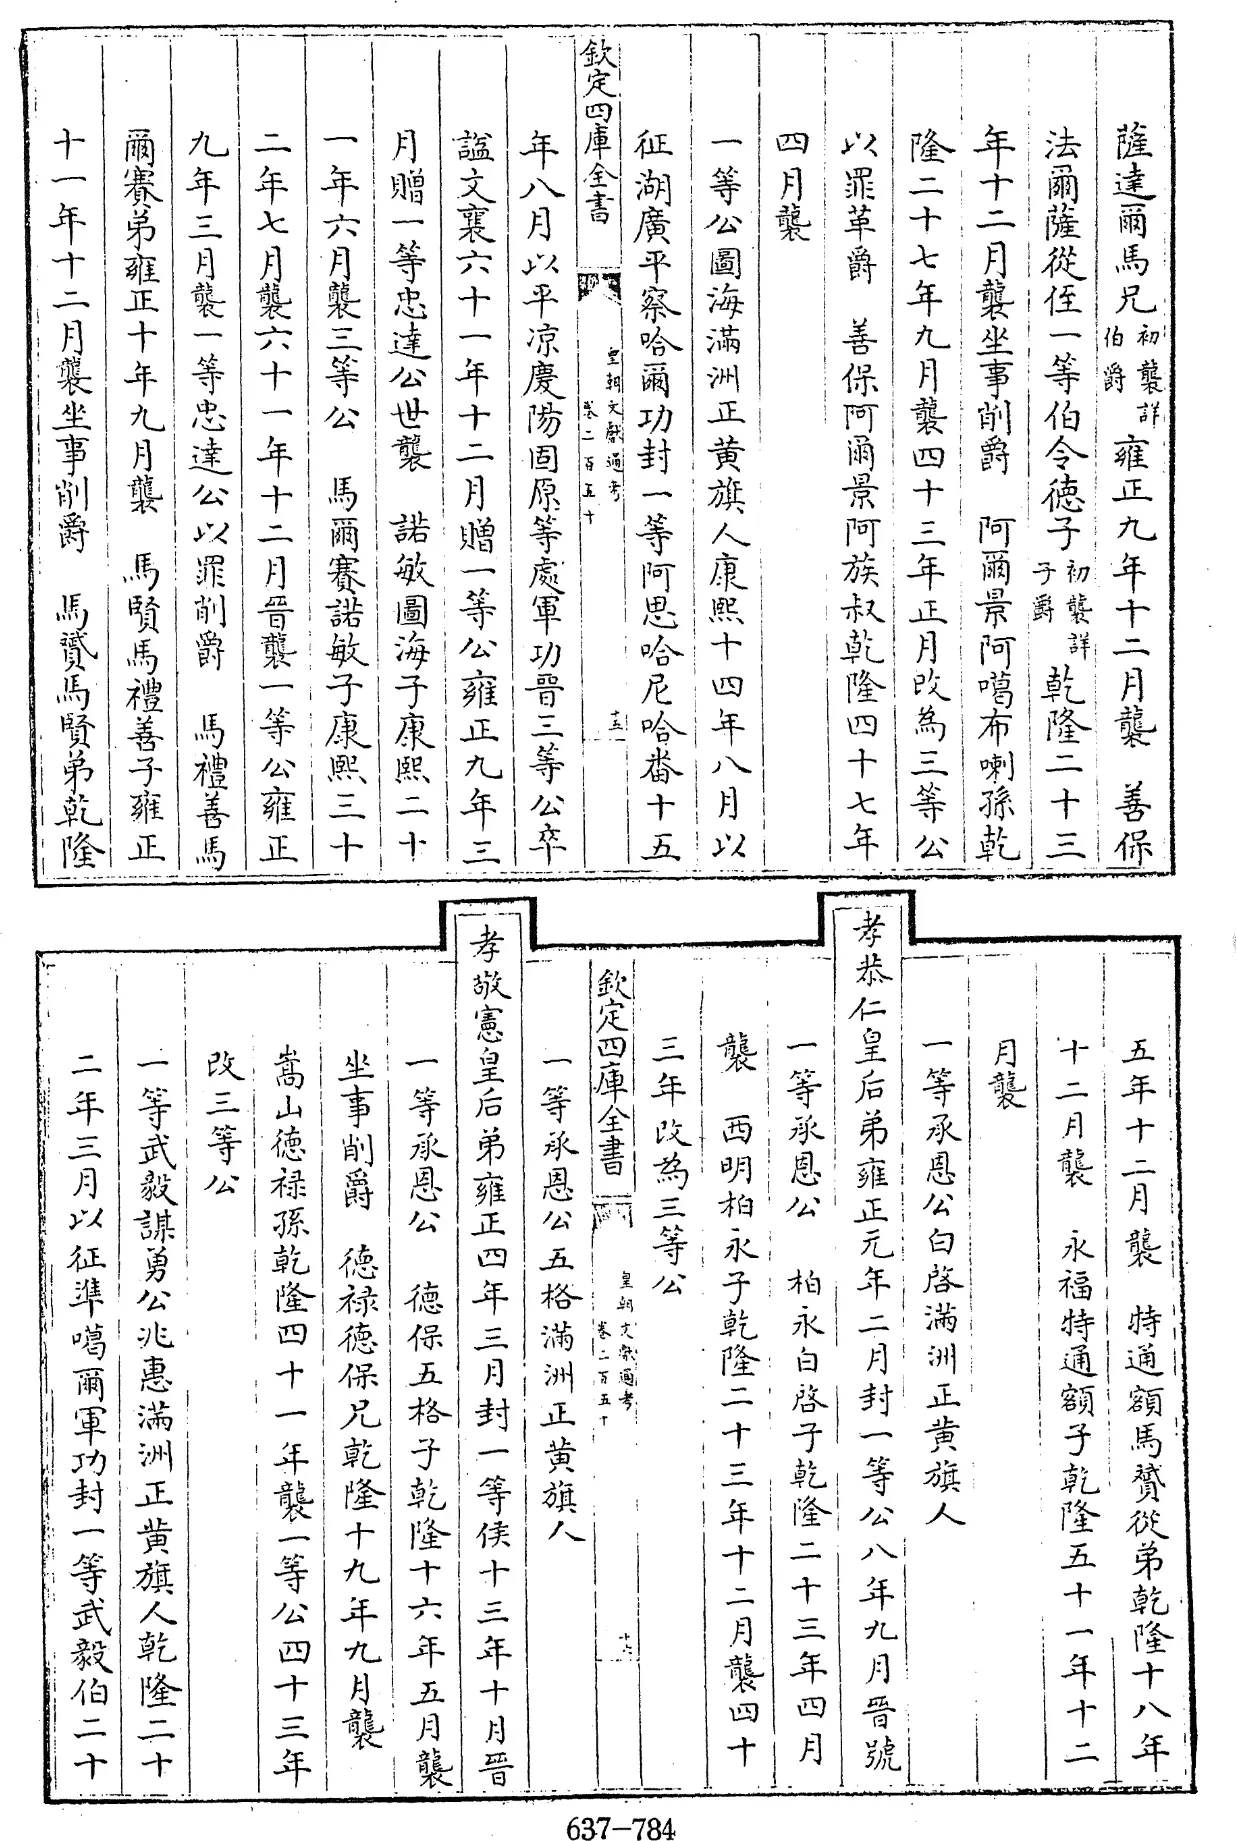 薩達爾馬兄初襲詳伯爵雍正九年十二月襲　善保
法爾薩從侄一等伯令德子初襲詳子爵乾隆二十三
年十二月襲坐事削爵　阿爾景阿噶布喇孫乾
隆二十七年九月襲四十三年正月改為三等公
以罪革爵　善保阿爾景阿族叔乾隆四十七年
四月襲
一等公圖海滿洲正黃旗人康熙十四年八月以
征湖廣平察哈爾功封一等阿思哈尼哈番十五
欽定四庫全書
皇朝文獻通考
卷二百五十
十五
年八月以平凉慶陽固原等處軍功晋三等公卒
諡文襄六十一年十二月贈一等公雍正九年三
月贈一等忠達公世襲　諾敏圖海子康熙二十
一年六月襲三等公　馬爾賽諾敏子康熙三十
二年七月襲六十一年十二月晋襲一等公雍正
九年三月襲一等忠達公以罪削爵　馬禮善馬
爾賽弟雍正十年九月襲　馬賢馬禮善子雍正
十一年十二月襲坐事削爵　馬贇馬賢弟乾隆
五年十二月襲　特通額馬贇從弟乾隆十八年
十二月襲　永福特通額子乾隆五十一年十二
月襲
一等承恩公白啓滿洲正黃旗人
孝恭仁皇后弟雍正元年二月封一等公八年九月晋號
一等承恩公　柏永白啓子乾隆二十三年四月
襲　西明柏永子乾隆二十三年十二月襲四十
三年改為三等公
欽定四庫全書
皇朝文獻通考
卷二百五十
十六
一等承恩公五格滿洲正黃旗人
孝敬憲皇后弟雍正四年三月封一等侯十三年十月晋
一等承恩公　德保五格子乾隆十六年五月襲
坐事削爵　德禄德保兄乾隆十九年九月襲
嵩山德禄孫乾隆四十一年襲一等公四十三年
改三等公
一等武毅謀勇公兆惠滿洲正黃旗人乾隆二十
二年三月以征準噶爾軍功封一等武毅伯二十
637-784